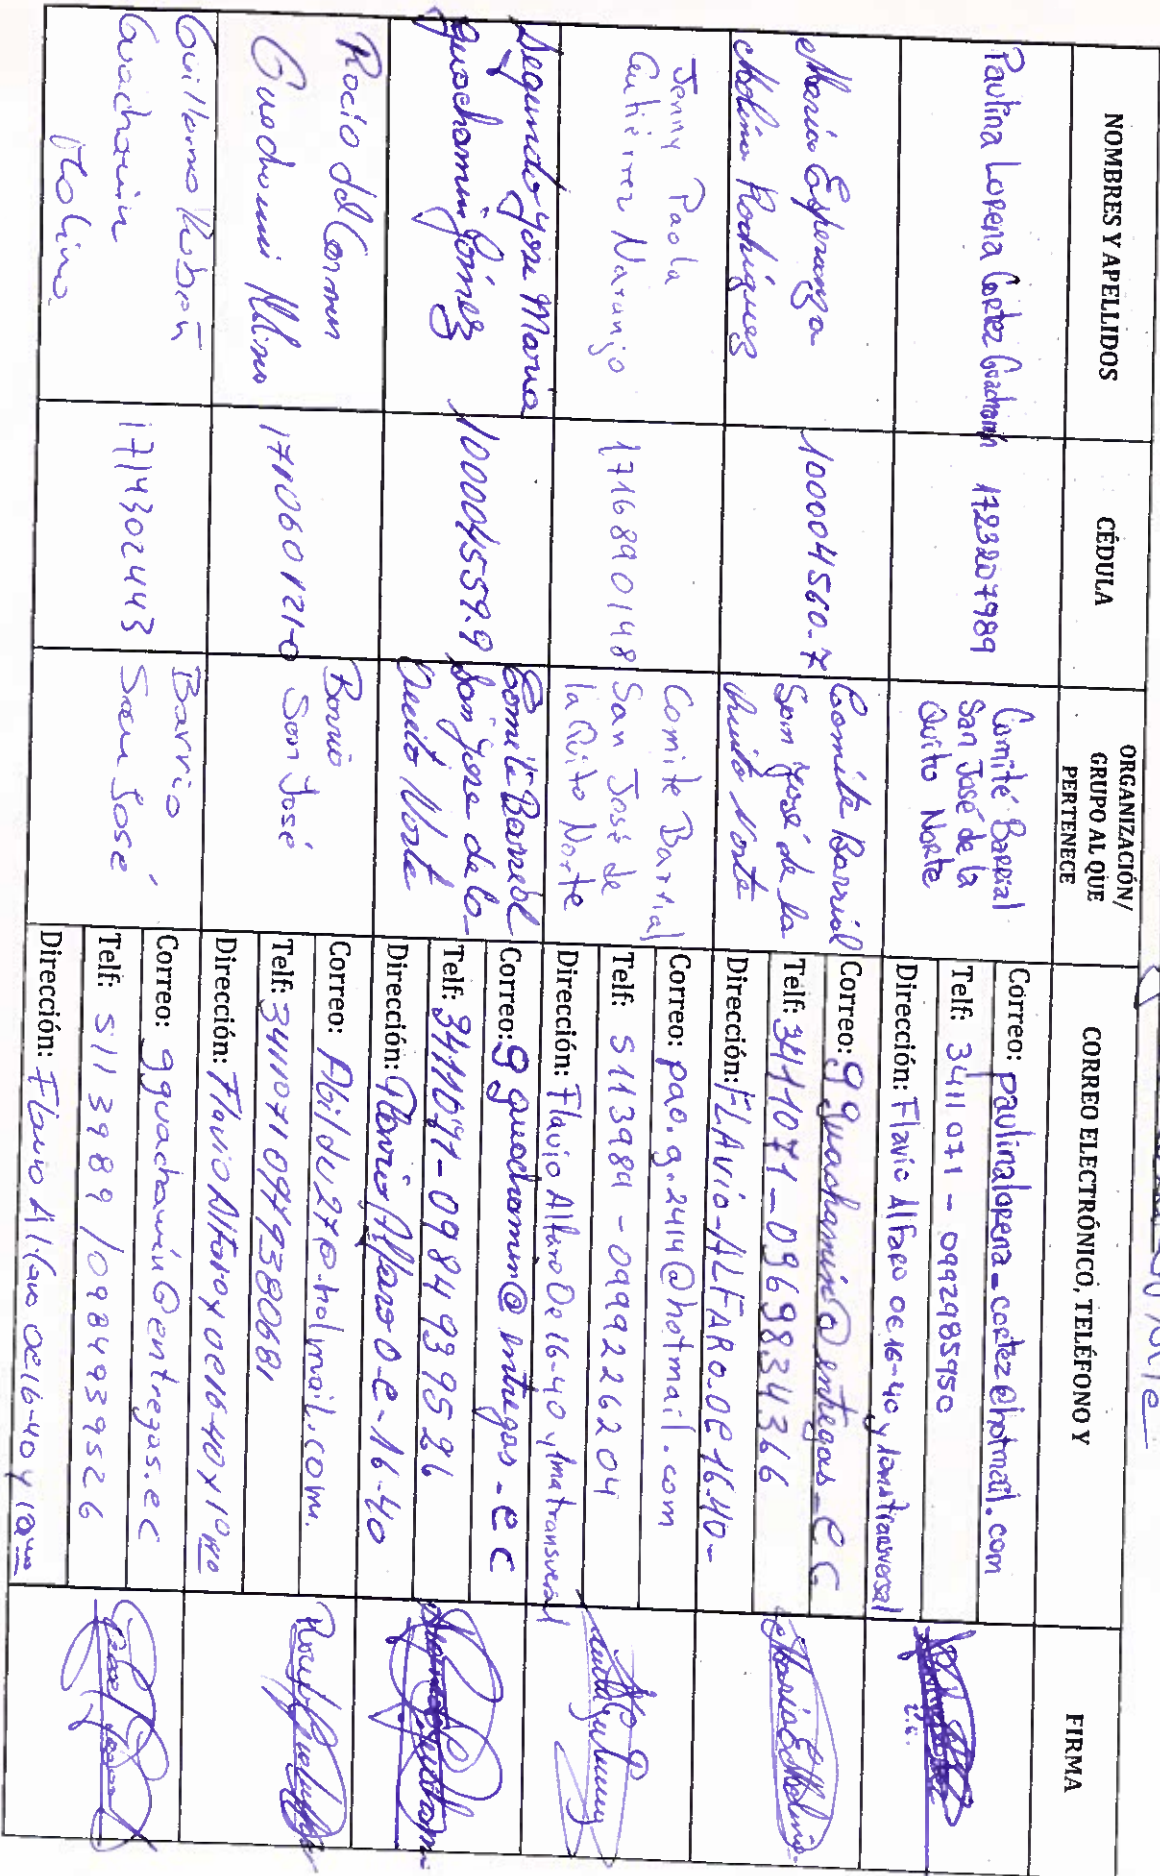 NOMBRES Y APELLIDOS
CÉDULA
ORGANIZACIÓN/
GRUPO AL QUE
PERTENECE
CORREO ELECTRÓNICO, TELÉFONO Y
FIRMA
Paulina Lorena Cortez Guachamín
1723207989
Comité Barrial
San José de la
Quito Norte
Correo: paulinalorena_cortez@hotmail.com
Telf: 3411071 - 0992985950
Dirección: Flavio Alfaro OE16-40 y 1ma transversal
María Esperanza
Molina Rodríguez
100004560-7
Comite Barrial
San José de la
Quito Norte
Correo: gguachamin@entregas-ec
Telf: 3411071-0969834366
Dirección: FLAVIO-ALFARO.OE16.40-
Jenny Paola
Gutiérrez Naranjo
1716890148
Comite Barrial
San José de
la Quito Norte
Correo: pao.g.2414@hotmail.com
Telf: 5113989 - 0999226204
Dirección: Flavio Alfaro Oe16-40 y 1ma transversal
Segundo José Maria
guachamin Gómez
100004559.9
Comite Barrial
San Jose de la-
Quito Norte
Correo: gguachamin@entregas-ec
Telf: 3411071-0984939526
Dirección: Flavio Alfaro O-e-16-40
Rocio del Carmen
Guachamin Molina
171060121-0
Barrio
San José
Correo: Abildu27@hotmail.com.
Telf: 3411071 0979380681
Dirección: Flavio Alfaro y oe16-40 y 1º
Guillermo Rubén
Guachamín
Molina
1714302443
Barrio
San José
Correo: gguachamín@entregas.ec
Telf: 5113989 / 0984939526
Dirección: Flavio Alfaro Oe16-40 y 1